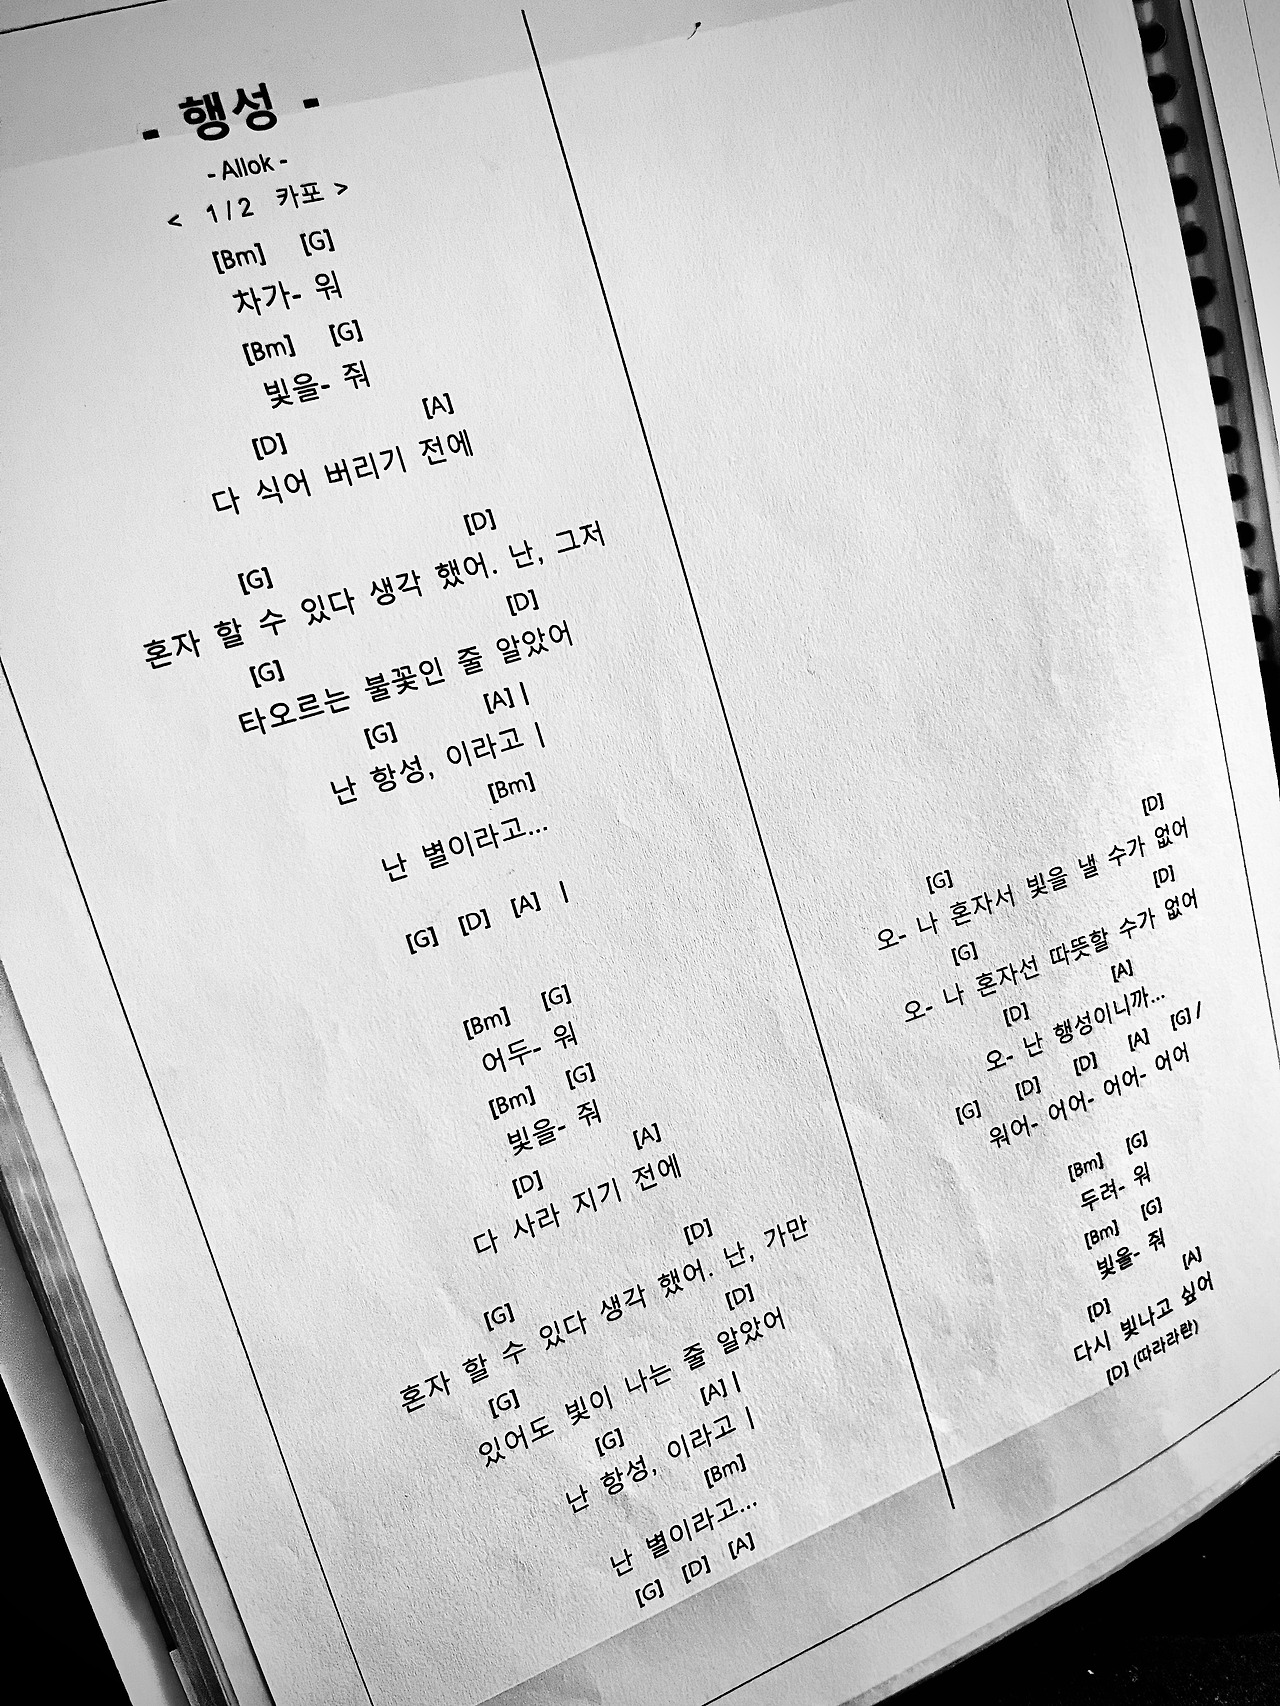 - 행성 -
- Allok -
< 1/2 카포 >
[Bm] [G]
차가- 워
[Bm] [G]
빛을- 줘
[D] [A]
다 식어 버리기 전에
[G] [D]
혼자 할 수 있다 생각 했어. 난, 그저
[G] [D]
타오르는 불꽃인 줄 알았어
[G] [A] |
난 항성, 이라고 |
[Bm]
난 별이라고...
[G] [D] [A] |
[Bm] [G]
어두- 워
[Bm] [G]
빛을- 줘
[D] [A]
다 사라 지기 전에
[G] [D]
혼자 할 수 있다 생각 했어. 난, 가만
[G] [D]
있어도 빛이 나는 줄 알았어
[G] [A] |
난 항성, 이라고 |
[Bm]
난 별이라고...
[G] [D] [A]
[G] [D]
오- 나 혼자서 빛을 낼 수가 없어
[G] [D]
오- 나 혼자선 따뜻할 수가 없어
[D] [A]
오- 난 행성이니까...
[G] [D] [D] [A] [G] /
워어- 어어- 어어- 어어
[Bm] [G]
두려- 워
[Bm] [G]
빛을- 줘
[D] [A]
다시 빛나고 싶어
[D] (따라라란)